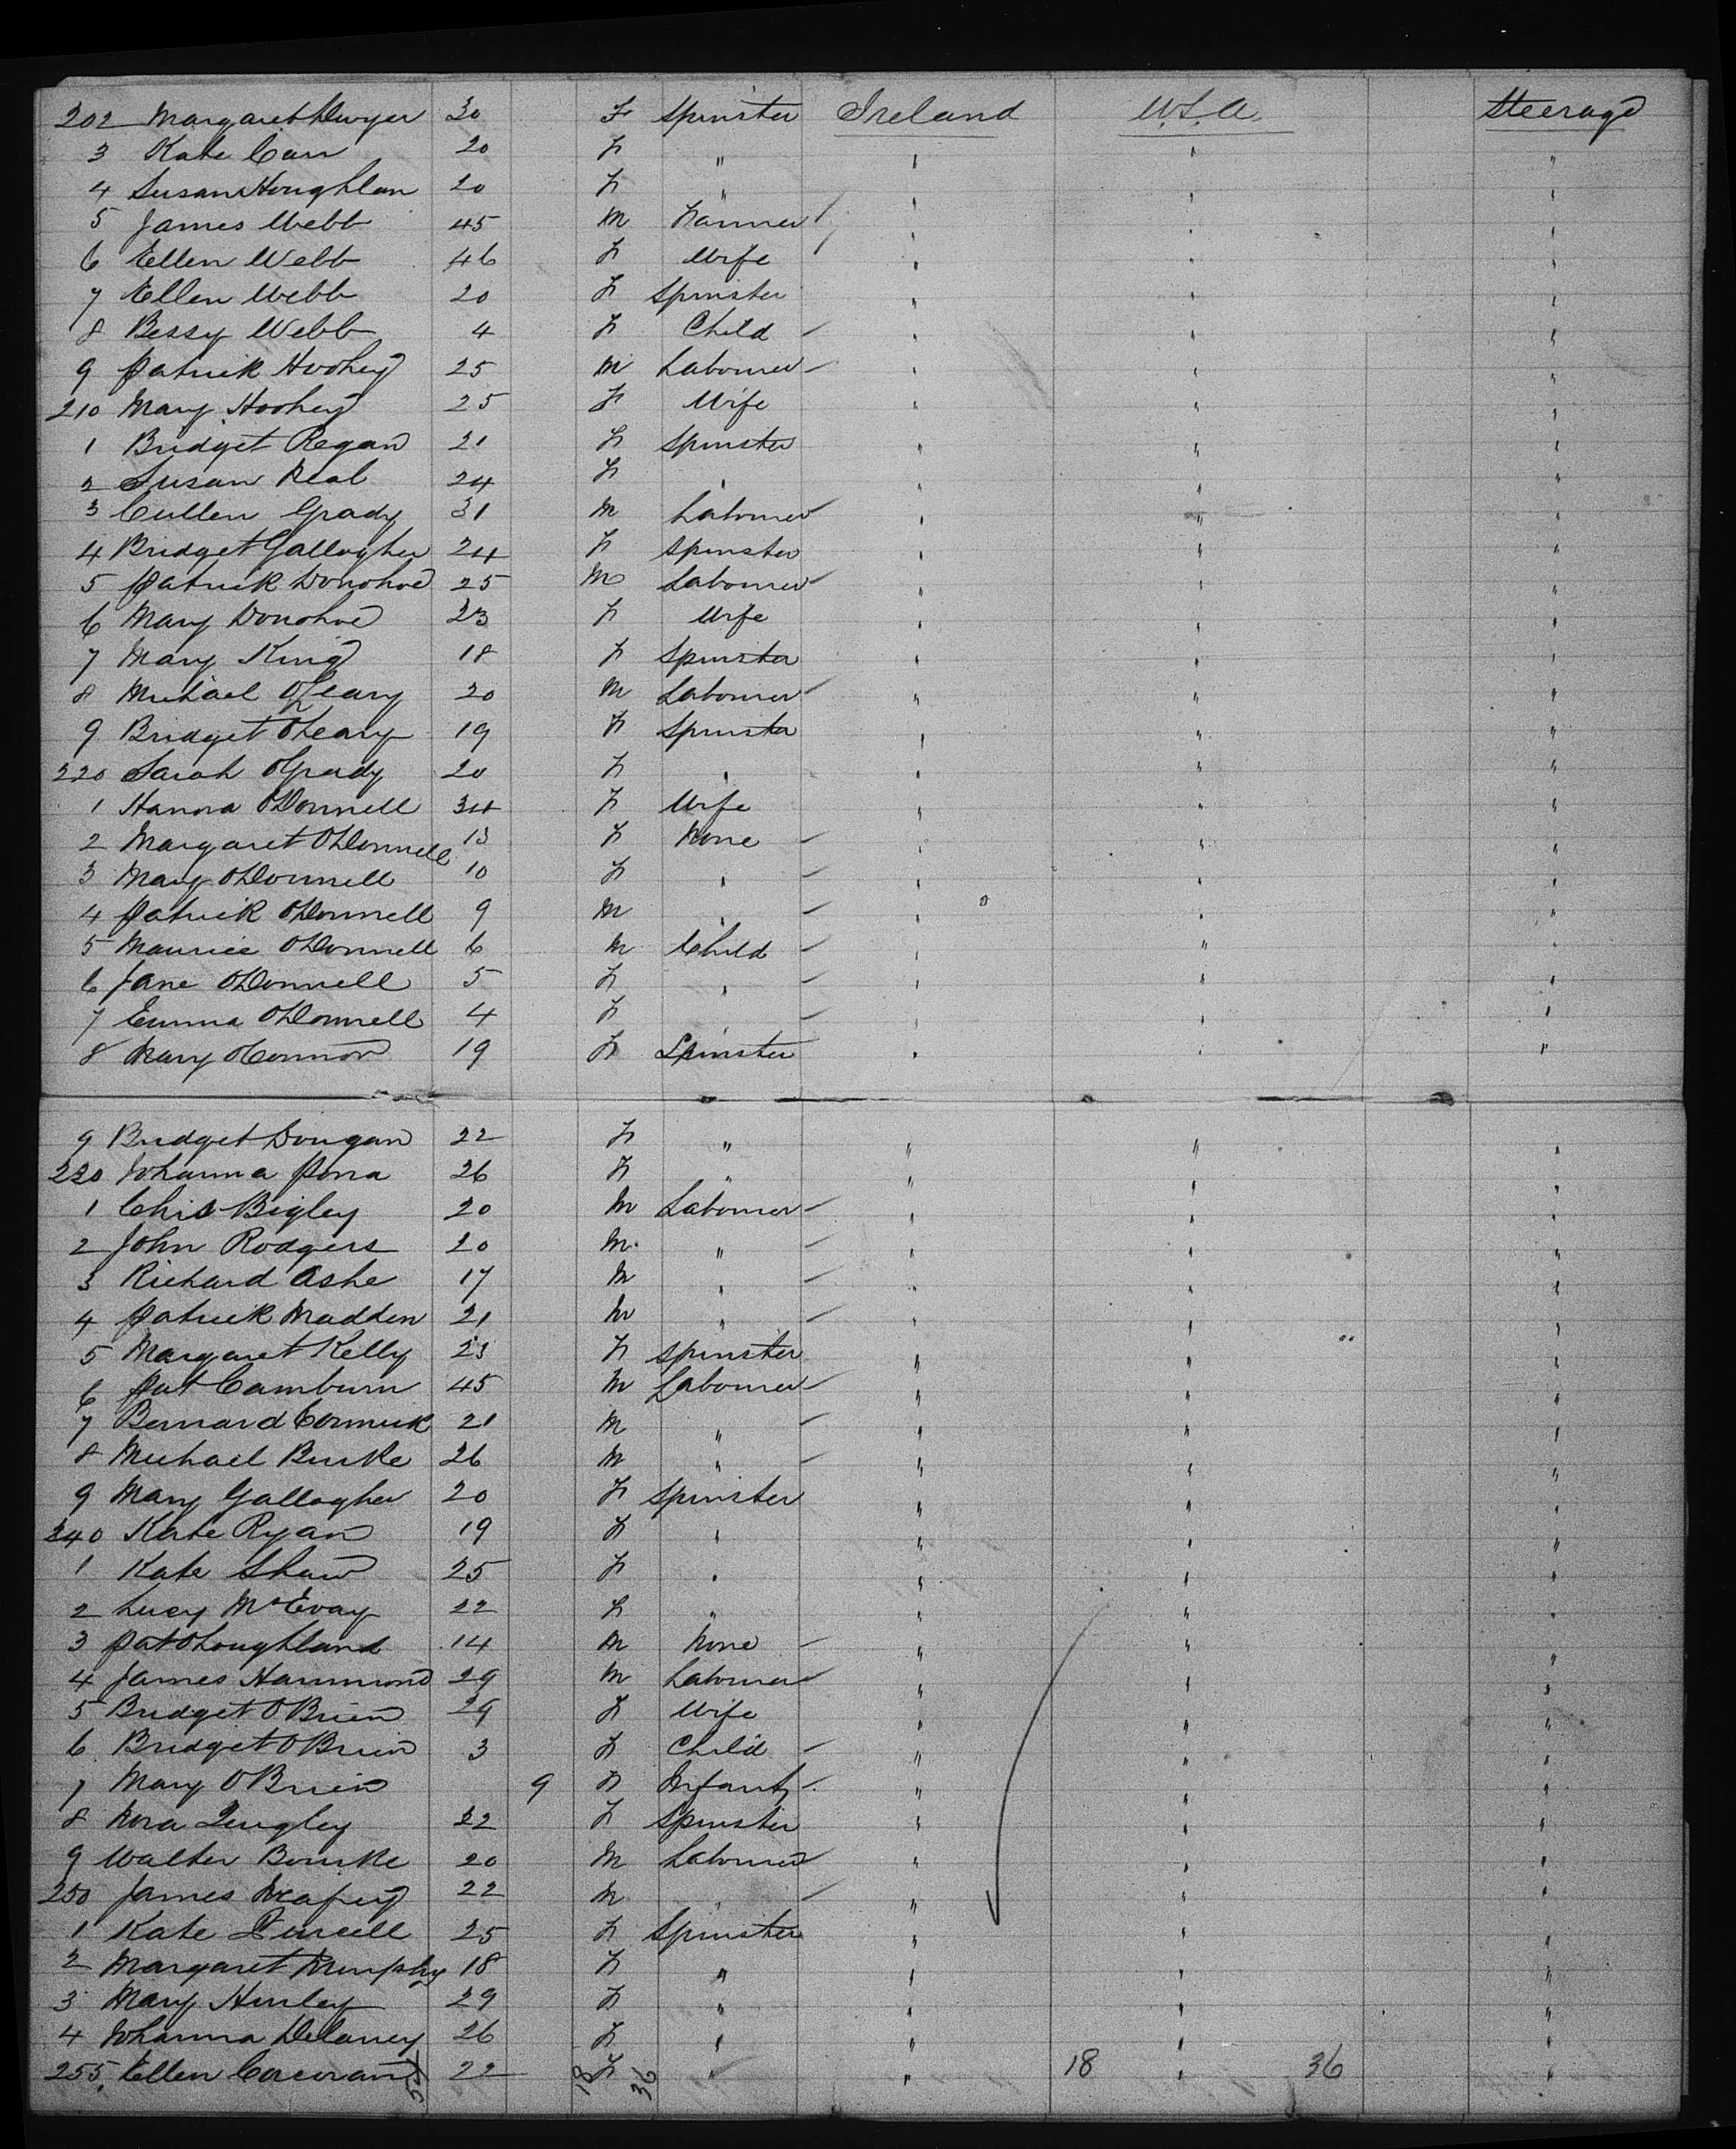 202 Margaret Dwyer 30 F Spinster Ireland U.S.A. Steerage
3 Kate Carr 20 F " " " "
4 Susan Houghlan 20 F " " " "
5 James Webb 45 M Farmer " " "
6 Ellen Webb 46 F Wife " " "
7 Ellen Webb 20 F Spinster " " "
8 Bessy Webb 4 F Child " " "
9 Patrick Hoohey 25 M Labourer " " "
210 Mary Hoohey 25 F Wife " " "
1 Bridget Regan 21 F Spinster " " "
2 Susan Real 24 F " " " "
3 Cullen Grady 31 M Labourer " " "
4 Bridget Gallogher 24 F Spinster " " "
5 Patrick Donohoe 25 M Labourer " " "
6 Mary Donohoe 23 F Wife " " "
7 Mary King 18 F Spinster " " "
8 Michael O'Leary 20 M Labourer " " "
9 Bridget O'Leary 19 F Spinster " " "
220 Sarah O'Grady 20 F " " " "
1 Hanora O'Donnell 34 F Wife " " "
2 Margaret O'Donnell 13 F None " " "
3 Mary O'Donnell 10 F " " " "
4 Patrick O'Donnell 9 M " " " "
5 Maurice O'Donnell 6 M Child " " "
6 Jane O'Donnell 5 F " " " "
7 Emma O'Donnell 4 F " " " "
8 Mary O'Connor 19 F Spinster " " "
9 Bridget Dougan 22 F " " " "
230 Johanna 26 F " " " "
1 Chis Bigley 20 M Labourer " " "
2 John Rodgers 20 M " " " "
3 Richard Ashe 17 M " " " "
4 Patrick Madden 21 M " " " "
5 Margaret Kelly 23 F Spinster " " "
6 Pat Camburn 45 M Labourer " " "
7 Bernard Cormick 21 M " " " "
8 Michael Burke 26 M " " " "
9 Mary Gallogher 20 F Spinster " " "
240 Kate Ryan 19 F " " " "
1 Kate Shaw 25 F " " " "
2 Lucy McEvay 22 F " " " "
3 Pat O'Loughland 14 M None " " "
4 James Hammond 29 M Labourer " " "
5 Bridget O'Brien 29 F Wife " " "
6 Bridget O'Brien 3 F Child " " "
7 Mary O'Brien 9 F Infant " " "
8 Nora Quigley 22 F Spinster " " "
9 Walter Bourke 20 M Labourer " " "
250 James 22 M " " " "
1 Kate Purcell 25 F Spinster " " "
2 Margaret Murphy 18 F " " " "
3 Mary Hurley 29 F " " " "
4 Johanna Delaney 26 F " " " "
255 Ellen Corcoran 22 18 F 36 " " 18 " 36 "